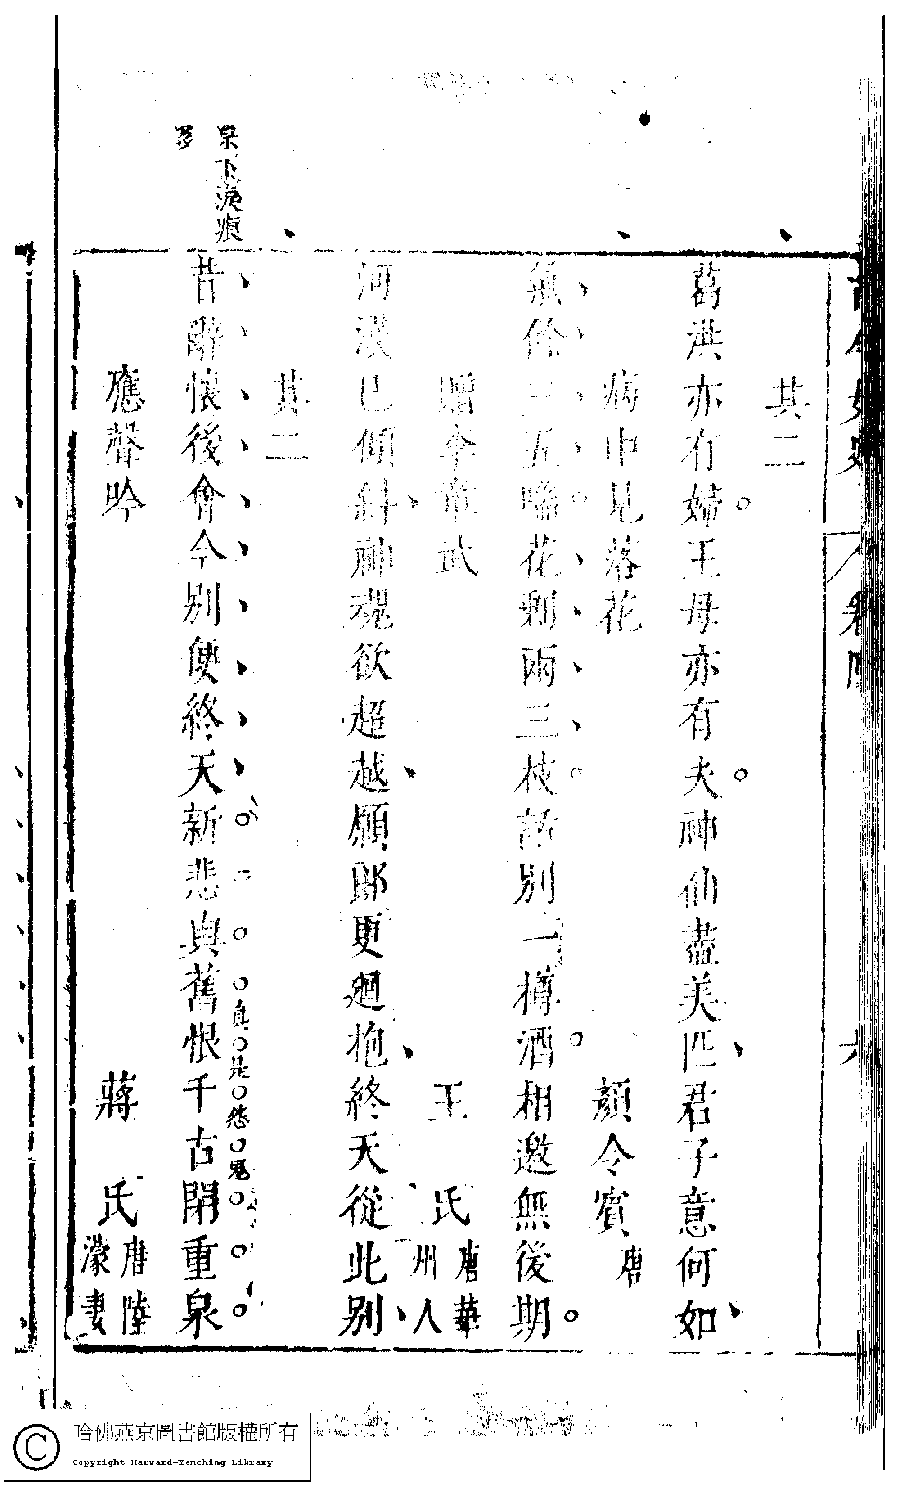 其二
葛洪亦有婦王母亦有夫神仙盡美匹君子意何如
病中見落花 顏令賓 唐
氣餘三五喘花剩兩三枝話別一樽酒相邀無後期
贈李章武 王氏 唐華州人
河漢已傾斜神魂欲超越願郎更迴抱終天從此別
其二
泉下淚痕多
昔辭懷後會今別便終天新悲與舊恨千古閉重泉
真是怨鬼
應聲吟 蔣氏 唐陸濛妻
哈佛燕京圖書館版權所有
Copyright Harvard-Yenching Library